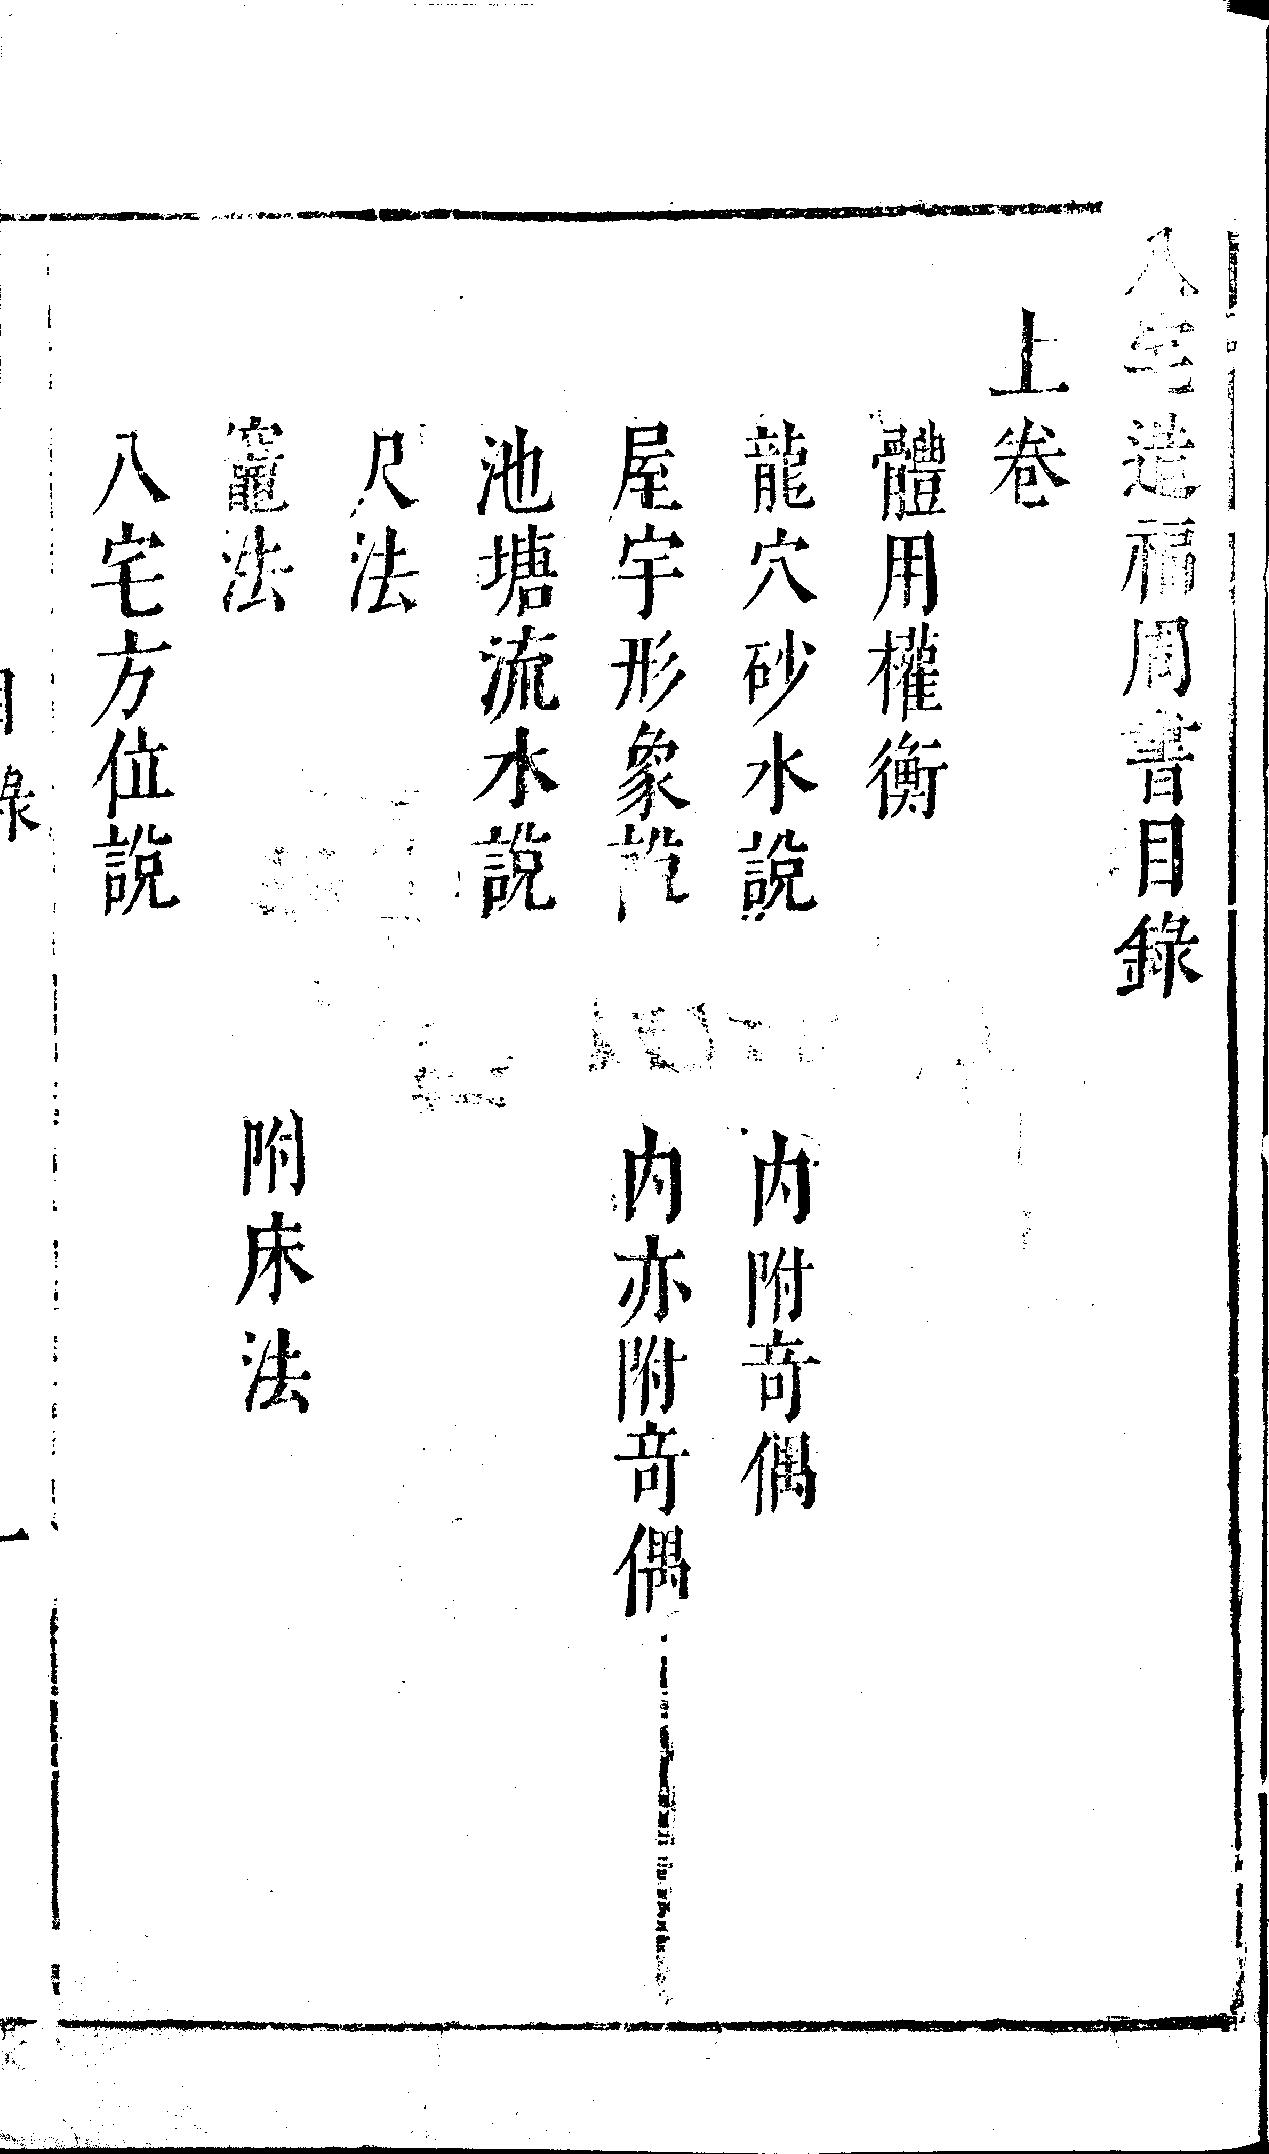 八宅造福周書目錄
上卷
體用權衡
龍穴砂水說　內附竒偶
屋宇形象說　內亦附竒偶
池塘流水說
尺法
竈法　附床法
八宅方位說
目錄
一